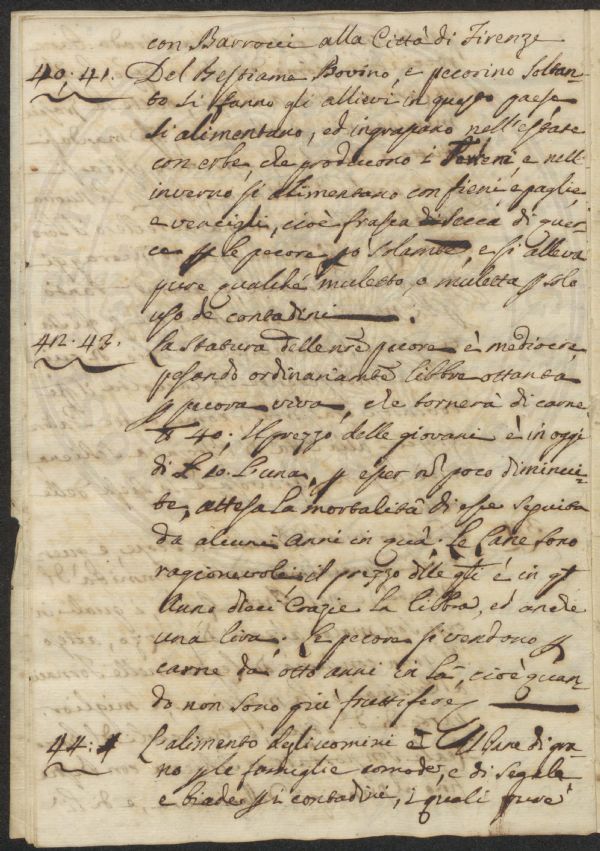 con Barrocci alla Città di Firenze
40, 41. Del Bestiame Bovino, e pecorino Soltan-
to si fanno gli allievi in questo paese
si alimentano, ed ingrassano nell'estate
con erbe, che producono i Terreni, e nell'
inverno si alimentano con fieni e paglie
e vencigli, cioè frasca secca di quer-
ce p le pecore solamte, e si alleva
pure qualche muletto, o muletta p solo
uso de contadini
42. 43. La Statura delle nre pecore è mediocre,
pesando ordinariamte libbre ottanta
p pecora viva, che tornerà di carne
40; Il prezzo delle giovani è in oggi
di £ 10. l'una, p esser poco diminui-
te, attesa la mortalità di esse seguita
da alcuni anni in quà. Le Lane sono
ragionevoli, il prezzo delle qli è in qt
Anno dieci Crazie la libbra, ed anche
una lira. Le pecore si vendono p
carne da otto anni in là, cioè quan-
do non sono più fruttifere
44: L'alimento degli uomini è Il pane di gra-
no p le famiglie comode, e di segale
e biade p i contadini, i quali pure